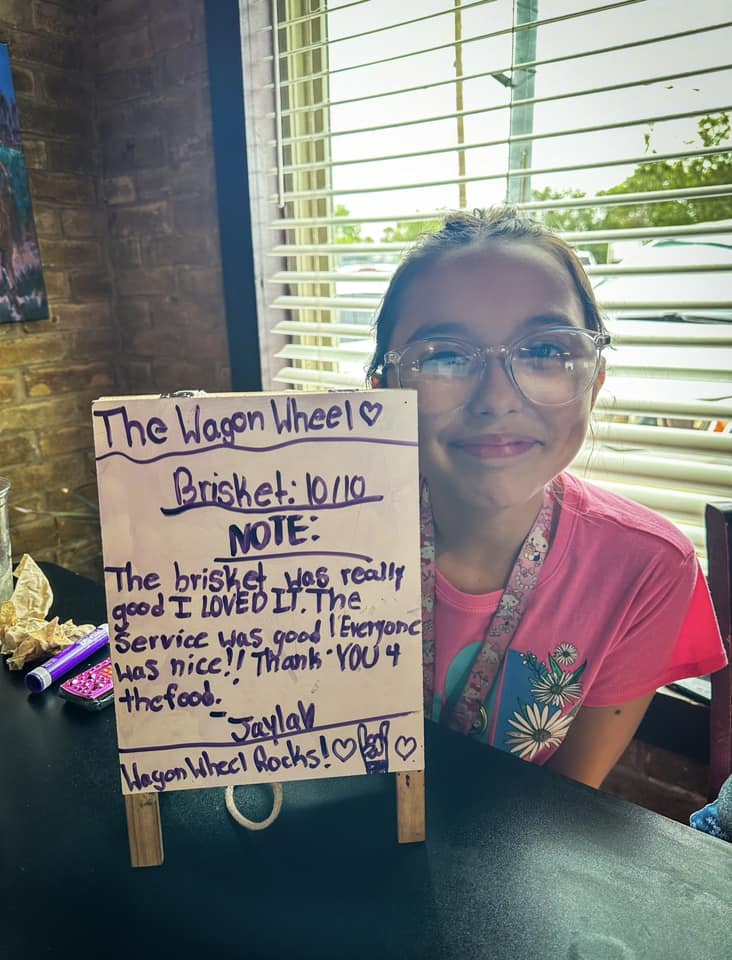 The Wagon Wheel♡
Brisket: 10/10
NOTE:
The brisket was really
good I LOVED IT. The
Service was good! Everyone
was nice!! Thank YOU 4
the food.
- Jaylah
Wagon Wheel Rocks! ♡ ♡